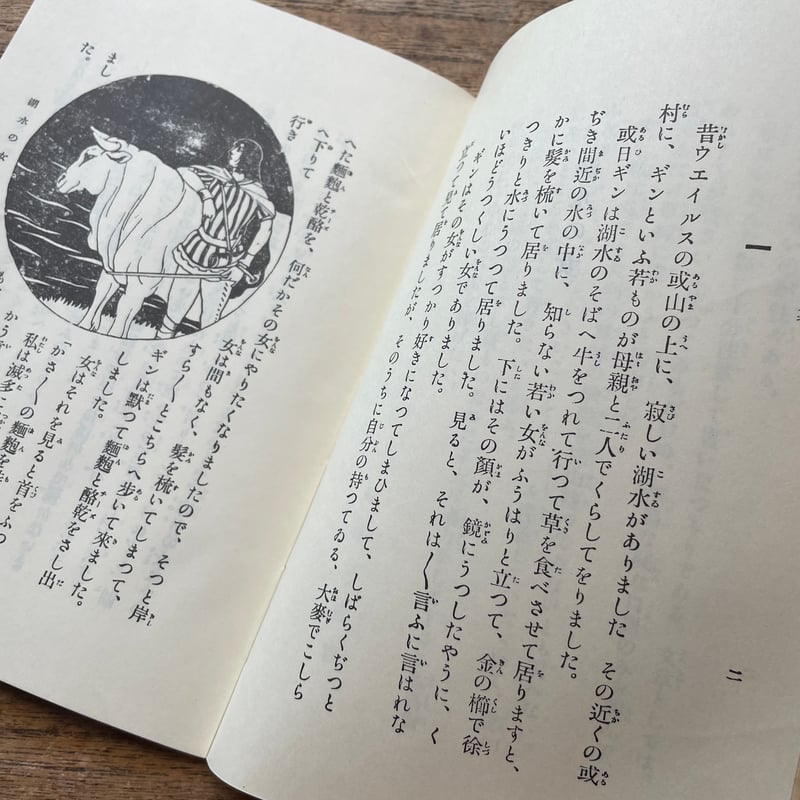 一
昔ウエイルスの或山の上に、寂しい湖水がありました　その近くの或
村に、ギンといふ若ものが母親と二人でくらしてをりました。
或日ギンは湖水のそばへ牛をつれて行つて草を食べさせて居りますと、
ぢき間近の水の中に、知らない若い女がふうはりと立つて、金の櫛で徐
かに髪を梳いて居りました。下にはその顔が、鏡にうつしたやうに、く
つきりと水にうつつて居りました。見ると、それは〳〵言ふに言はれな
いほどうつくしい女でありました。
ギンはその女がすつかり好きになつてしまひまして、しばらくぢつと
見て居りましたが、そのうちに自分の持つてゐる、大麥でこしら
二
へた麺麭と乾酪を、何だかその女にやりたくなりましたので、そつと岸
へ下りて
行き
まし
た。
女は間もなく、髪を梳いてしまつて、
すら〳〵とこちらへ歩いて來ました。
ギンは默つて麺麭と酪乾をさし出
しました。
女はそれを見ると首をふつ
「かさ〳〵の麺麭
私は滅多に
湖水の女